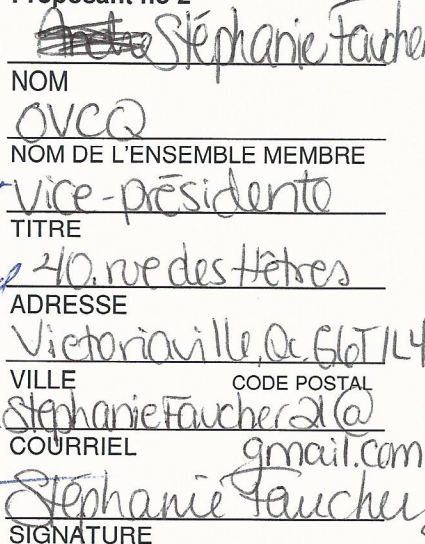 Proposant no 2
Stéphanie Faucher
NOM
OVCQ
NOM DE L'ENSEMBLE MEMBRE
Vice-présidente
TITRE
40, rue des Hêtres
ADRESSE
Victoriaville, Qc G6T 1L4
VILLE CODE POSTAL
StephanieFaucher21@
COURRIEL gmail.com
Stéphanie Faucher
SIGNATURE